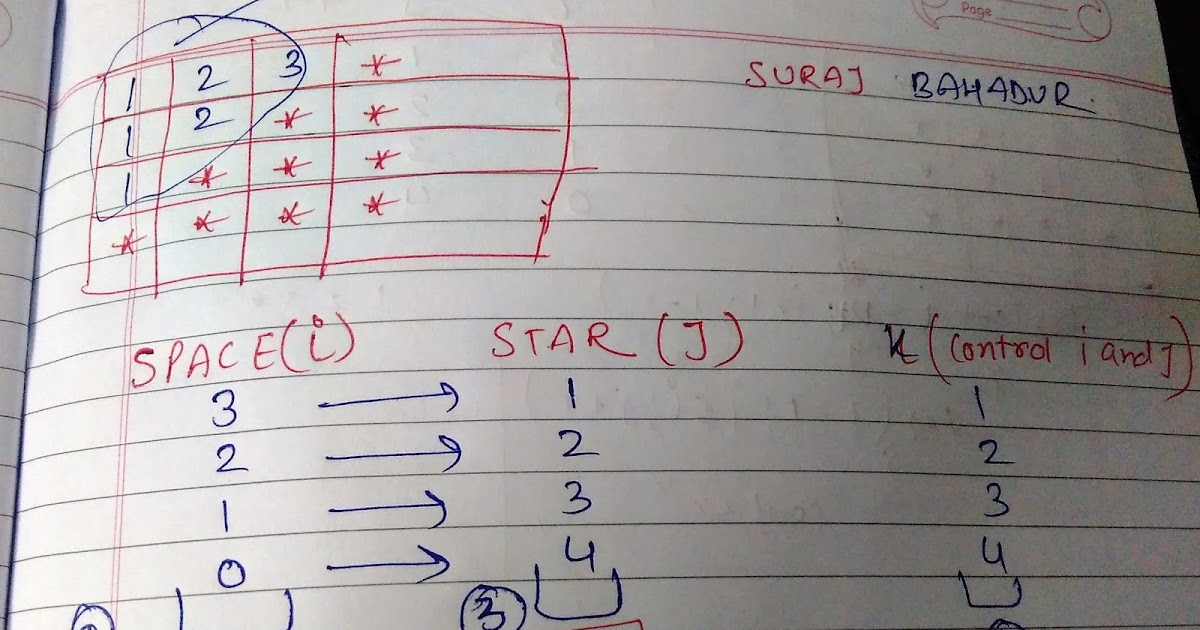 Page
1 2 3 *
SURAJ BAHADUR.
1 2 * *
1 * * *
* * * *
SPACE(i) STAR (J) K (Control i and J)
3 → 1 1
2 → 2 2
1 → 3 3
0 → 4 4
3